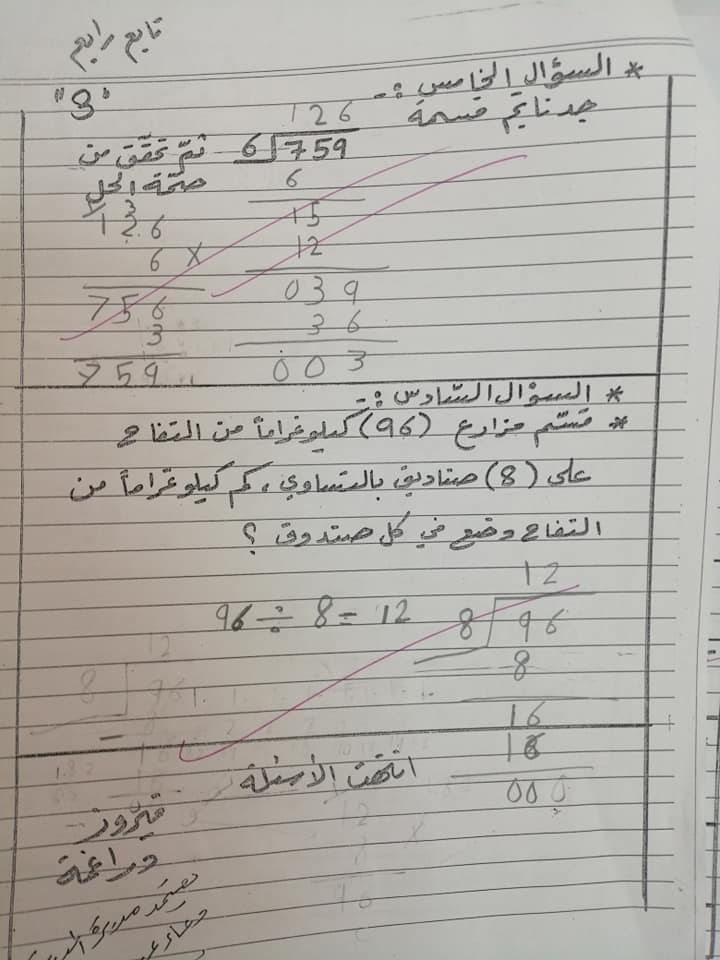 تابع رابع
"3"
* السؤال الخامس :-
جد ناتج قسمة
126
6 759 ثم تحقق من
صحة الحل
6
15
12
039
36
003
3
126
6 ×
756
3
759
* السؤال السادس :-
* قسّم مزارع (96) كيلوغراماً من التفاح
على (8) صناديق بالتساوي ، كم كيلوغراماً من
التفاح وضع في كل صندوق ؟
12
96 ÷ 8 = 12
8 96
8
16
16
000
12
8 96
انتهت الأسئلة
12
8 ×
96